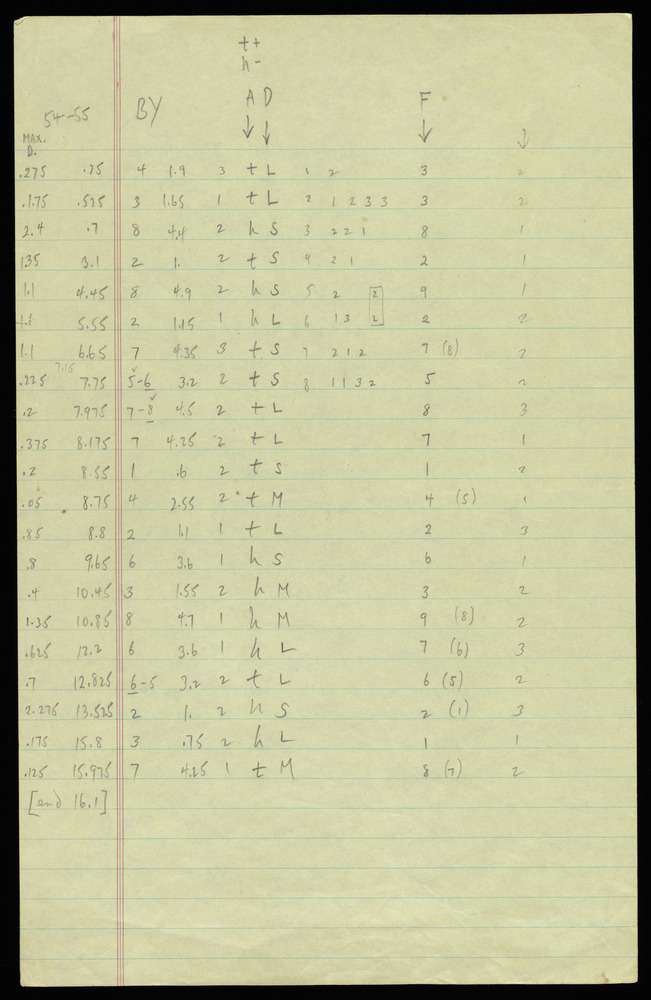 t+
h-
54-55 BY A D F
↓ ↓ ↓ ↓
MAX.
D.
.275 .25 4 1.9 3 t L 1 2 3 2
.175 .525 3 1.65 1 t L 2 1 2 3 3 3 2
2.4 .7 8 4.4 2 h S 3 2 2 1 8 1
1.35 3.1 2 1. 2 t S 4 2 1 2 1
1.1 4.45 8 4.9 2 h S 5 2 2 9 1
1.1 5.55 2 1.15 1 h L 6 1 3 2 2 2
1.1 6.65 7 4.35 3 t S 7 2 1 2 7 (8) 2
7.15
.225 7.75 5-6 3.2 2 t S 8 1 1 3 2 5 2
.2 7.975 7-8 4.5 2 t L 8 3
.375 8.175 7 4.25 2 t L 7 1
.2 8.55 1 .6 2 t S 1 2
.05 8.75 4 2.55 2 t M 4 (5) 1
.85 8.8 2 1.1 1 t L 2 3
.8 9.65 6 3.6 1 h S 6 1
.4 10.45 3 1.55 2 h M 3 2
1.35 10.85 8 4.7 1 h M 9 (8) 2
.625 12.2 6 3.6 1 h L 7 (6) 3
.7 12.825 6-5 3.2 2 t L 6 (5) 2
2.275 13.525 2 1. 2 h S 2 (1) 3
.175 15.8 3 .75 2 h L 1 1
.125 15.975 7 4.25 1 t M 8 (7) 2
[end 16.1]